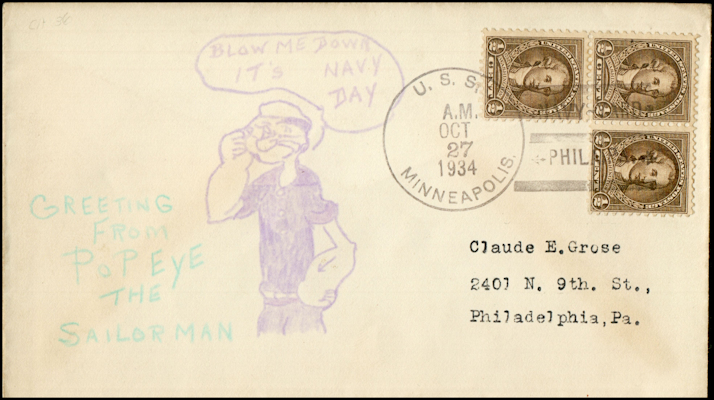 BLOW ME DOWN
IT'S NAVY
DAY
GREETING
FROM
POPEYE
THE
SAILOR MAN
U. S. S.
A.M.
OCT
27
1934
MINNEAPOLIS.
PHILA
Claude E.Grose
2401 N. 9th. St.,
Philadelphia,Pa.